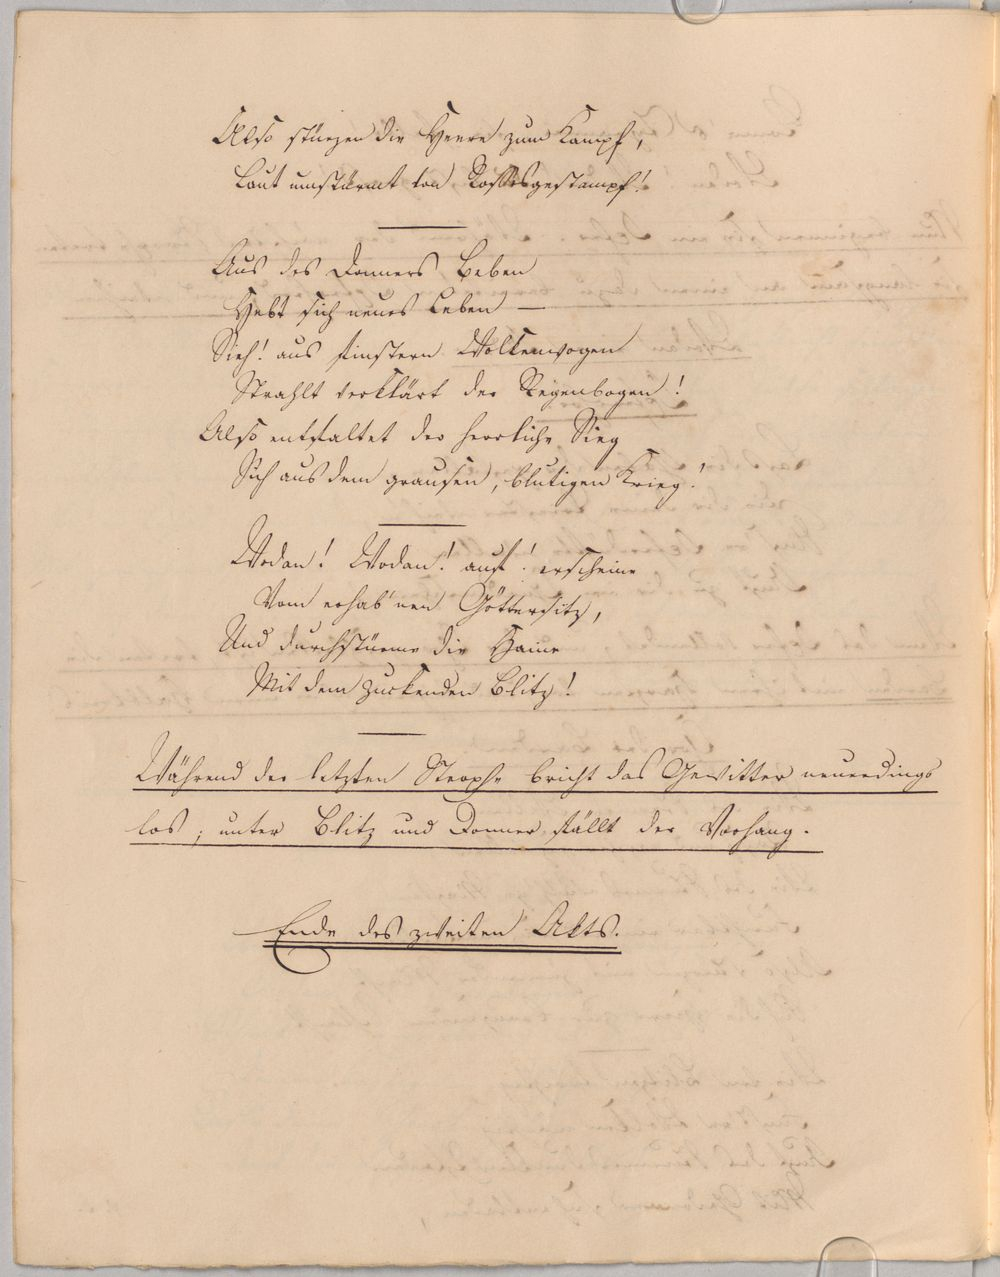 Also stürzen die Heere zum Kampf,
Laut umstürmt von Rossesgestampf!
Aus des Donners Beben
Hebt sich neues Leben —
Sieh! aus finstern Wolkenwogen
Strahlt verklärt der Regenbogen!
Also entfaltet der herrliche Sieg
Sich aus dem grausen, blutigen Krieg!
Wodan! Wodan! auf! erscheine
Vom erhab'nen Göttersitz,
Und durchstürme die Haine
Mit dem zuckenden Blitz!
Während der letzten Strophe bricht das Gewitter neuerdings
los; unter Blitz und Donner fällt der Vorhang.
Ende des zweiten Akts.